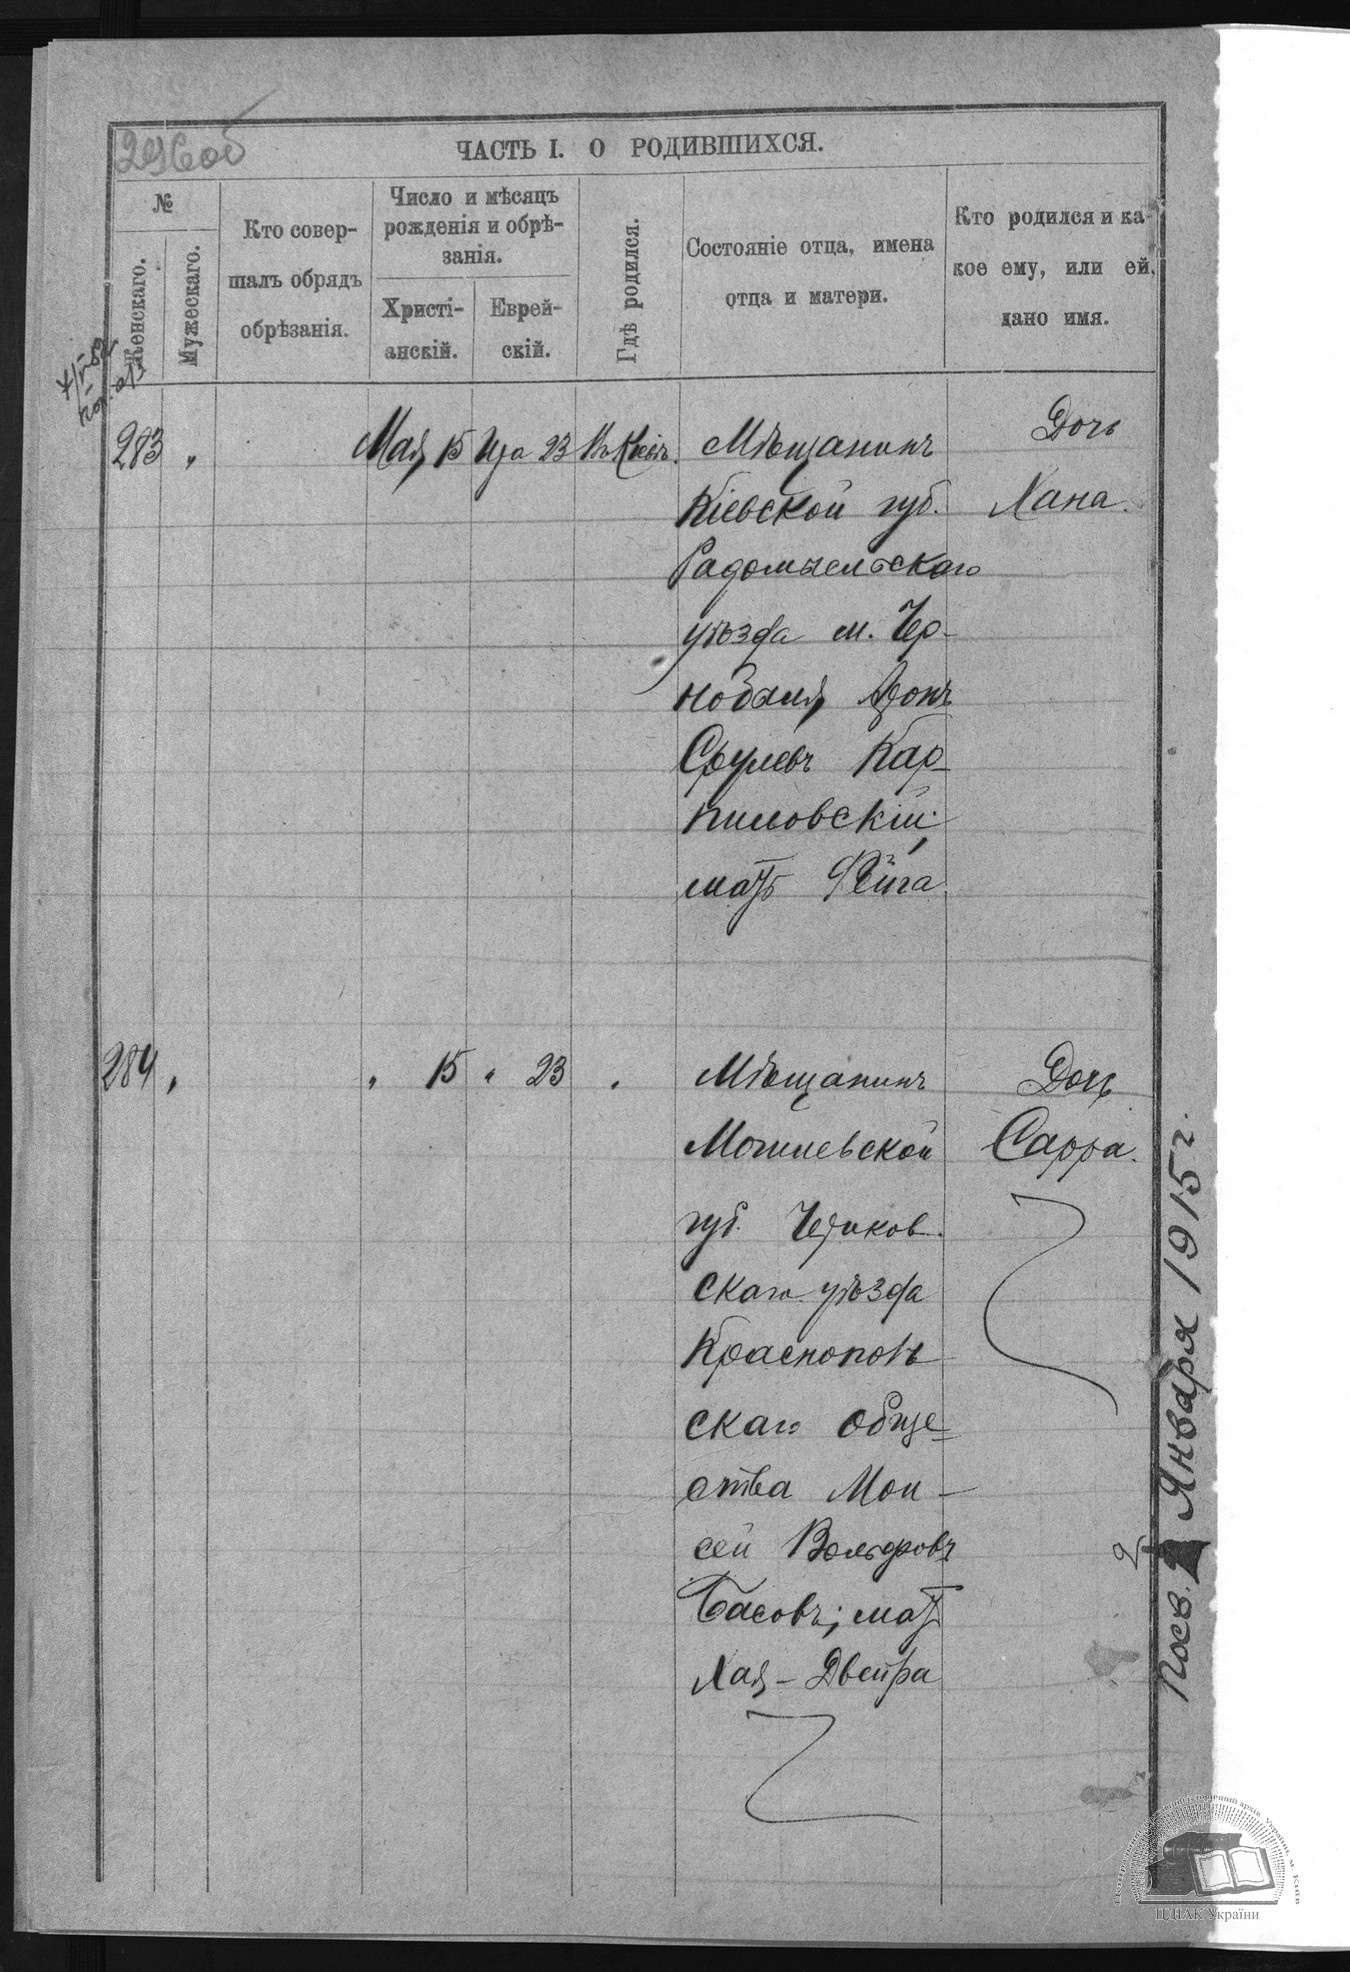 296об
ЧАСТЬ I. О РОДИВШИХСЯ.
№
Женскаго.
Мужескаго.
Кто совер-
шалъ обрядъ
обрѣзанія.
Число и мѣсяцъ
рожденія и обрѣ-
занія.
Христі-
анскій.
Еврей-
скій.
Гдѣ родился.
Состояніе отца, имена
отца и матери.
Кто родился и ка-
кое ему, или ей,
дано имя.
283 "
Мая 15
Ира 23
Въ Кіевѣ.
Мѣщанинъ
Кіевской губ.
Радомысльскаго
уѣзда м. Чер-
нобыля, Аронъ
Срулевъ Кар-
пиловскій;
мать Фейга.
Дочь
Хана.
284 "
" 15
" 23
"
Мѣщанинъ
Могилевской
губ. Чериков-
скаго уѣзда
Краснополь
скаго обще-
ства Мои-
сей Вольфовъ
Басовъ; мать
Хая-Двейра
Дочь
Сарра.
Посв. 2 Января 1915 г.
2
ЦДІАК України